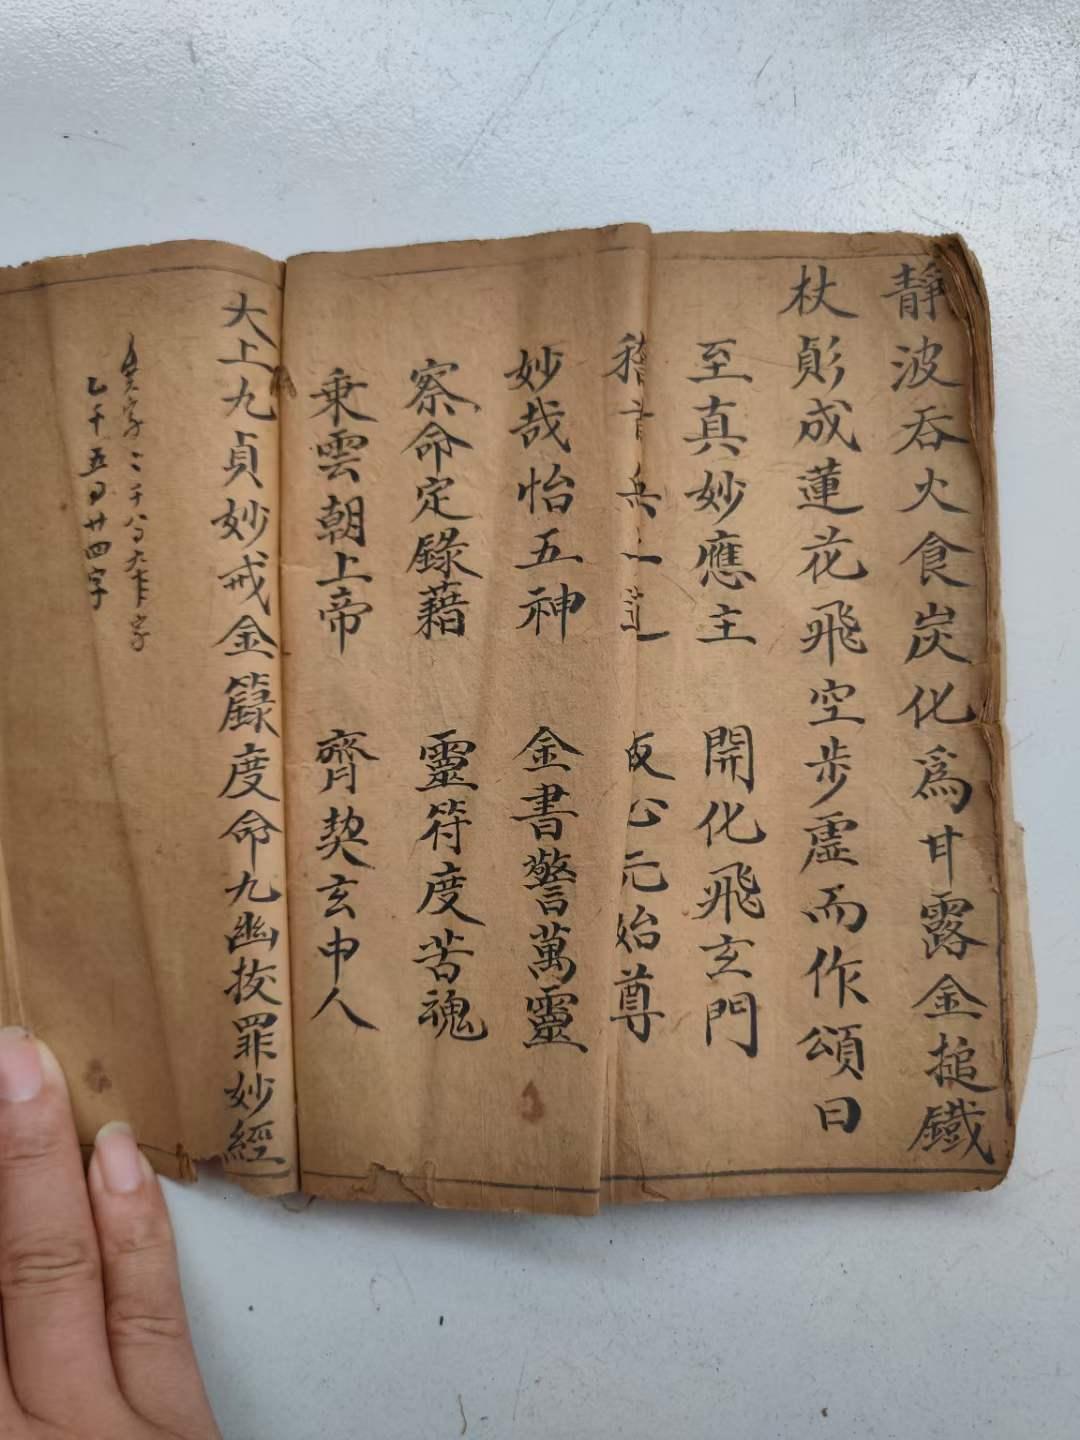 靜波吞火食炭化爲甘露金搥鐵
杖䰟成蓮花飛空步虛而作頌曰
至真妙應主 開化飛玄門
元始尊
妙哉怡五神 金書警萬靈
察命定錄藉 靈符度苦魂
乘雲朝上帝 齊契玄中人
大上九貞妙戒金籙度命九幽拔罪妙經
字二千
乙千五 廿四字